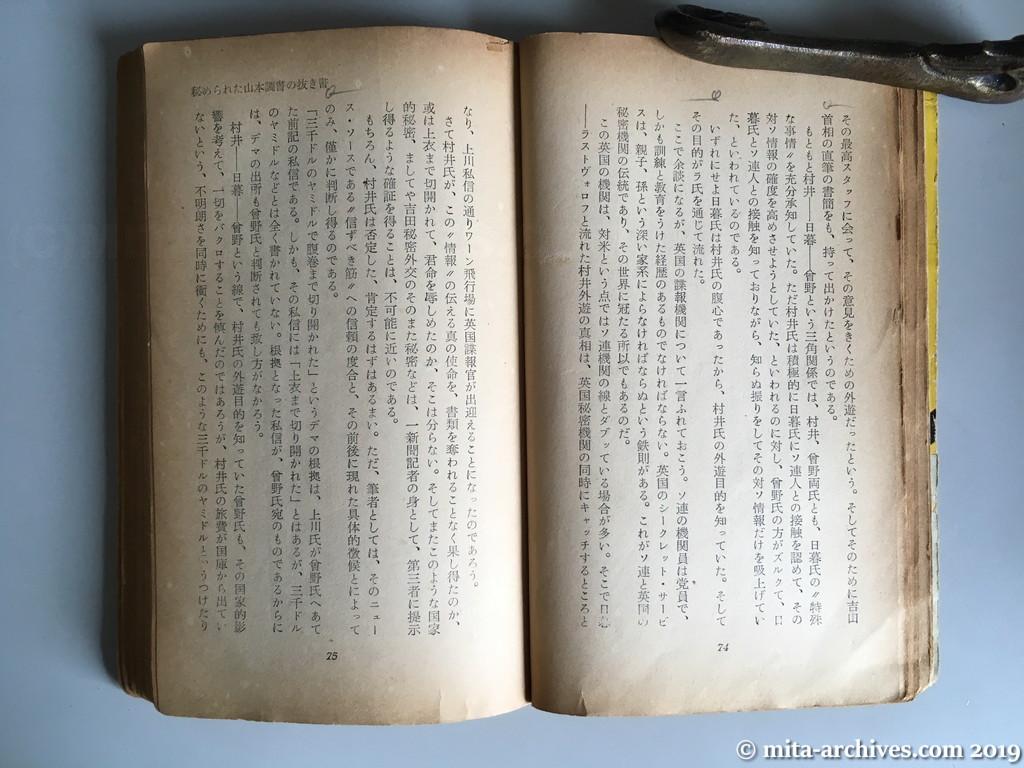 その最高スタッフに会って、その意見をきくための外遊だったという。そしてそのために吉田
首相の直筆の書簡をも、持って出かけたというのである。
もともと村井——日暮——曾野という三角関係では、村井、曾野両氏とも、日暮氏の〝特殊
な事情〟を充分承知していた。ただ村井氏は積極的に日暮氏にソ連人との接触を認めて、その
対ソ情報の確度を高めさせようとしていた、といわれるのに対し、曾野氏の方がズルクて、日
暮氏とソ連人との接触を知っておりながら、知らぬ振りをしてその対ソ情報だけを吸上げてい
た、といわれているのである。
いずれにせよ日暮氏は村井氏の腹心であったから、村井氏の外遊目的を知っていた。そして
その目的がラ氏を通じて流れた。
ここで余談になるが、英国の諜報機関について一言ふれておこう。ソ連の機関員は党員で、
しかも訓練と教育をうけた経歴のあるものでなければならない。英国のシークレット・サービ
スは、親子、孫という深い家系によらなければならぬという鉄則がある。これがソ連と英国の
秘密機関の伝統であり、その世界に冠たる所以でもあるのだ。
この英国の機関は、対米という点ではソ連機関の線とダブッている場合が多い。そこで日暮
——ラストヴォロフと流れた村井外遊の真相は、英国秘密機関の同時にキャッチするところと
74
秘められた山本調書の抜き書
なり、上川私信の通りワーン飛行場に英国諜報官が出迎えることになったのであろう。
さて村井氏が、この〝情報〟の伝える真の使命を、書類を奪われることなく果し得たのか、
或は上衣まで切開かれて、君命を辱しめたのか、そこは分らない。そしてまたこのような国家
的秘密、ましてや吉田秘密外交のそのまた秘密などは、一新聞記者の身として、第三者に提示
し得るような確証を得ることは、不可能に近いのである。
もちろん、村井氏は否定した、肯定するはずはあるまい。ただ、筆者としては、そのニュー
ス・ソースである〝信ずべき筋〟への信頼の度合と、その前後に現れた具体的徴候とによって
のみ、僅かに判断し得るのである。
「三千ドルのヤミドルで腹巻まで切り開かれた」というデマの根拠は、上川氏が曾野氏へあて
た前記の私信である。しかも、その私信には「上衣まで切り開かれた」とはあるが、三千ドル
のヤミドルなどとは全く書かれていない。根拠となった私信が、曾野氏宛のものであるからに
は、デマの出所も曾野氏と判断されても致し方がなかろう。
村井——日暮——曾野という線で、村井氏の外遊目的を知っていた曾野氏も、その国家的影
響を考えて、一切をバクロすることを慎んだのではあろうが、村井氏の旅費が国庫から出てい
ないという、不明朗さを同時に衝くためにも、このような三千ドルのヤミドルとうつけたり
75
© mita-archives.com 2019